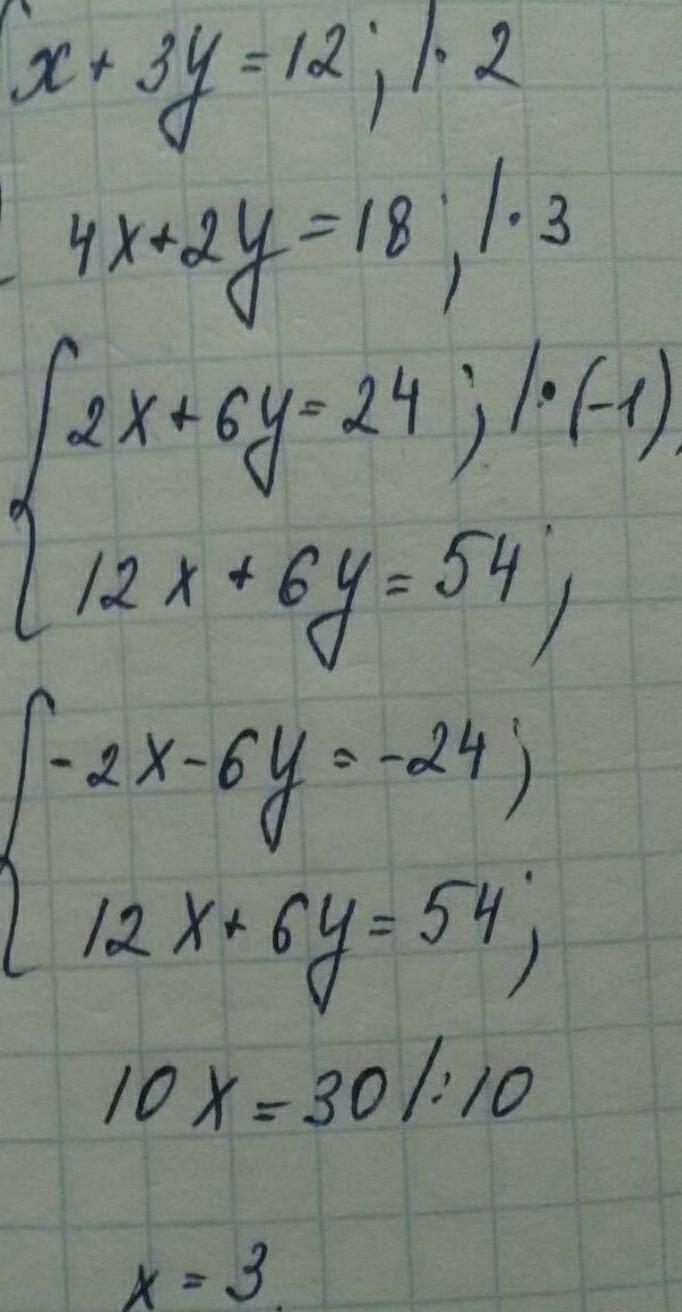 x + 3y = 12; /· 2
4x + 2y = 18; /· 3
2x + 6y = 24; /· (-1)
12x + 6y = 54;
-2x - 6y = -24;
12x + 6y = 54;
10x = 30 /: 10
x = 3